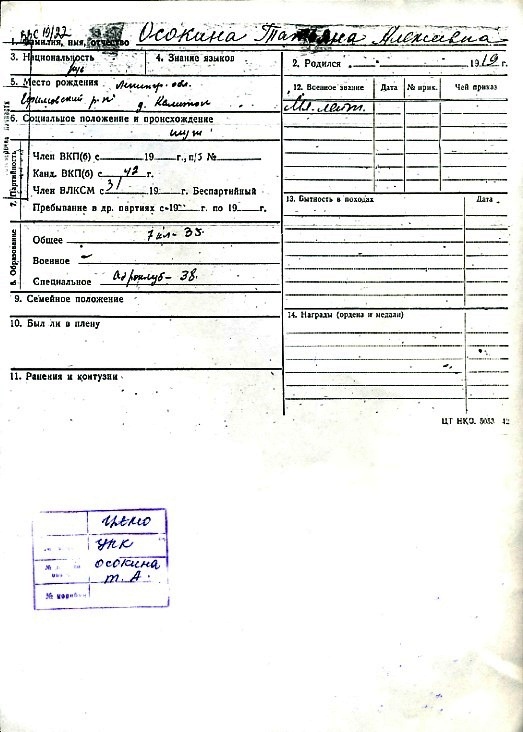 Осокина Татьяна Алексеевна
1. Фамилия, имя, отчество
3. Национальность
рус
4. Знание языков
2. Родился 1919 г.
5. Место рождения Ленингр. обл.
р-н д.
6. Социальное положение и происхождение
служ
7. Партийность
Член ВКП(б) с 19 г., п/б №
Канд. ВКП(б) с 42 г.
Член ВЛКСМ с 31 19 г. Беспартийный
Пребывание в др. партиях с 19 г. по 19 г.
8. Образование
Общее 7 кл - 35.
Военное -
Специальное аэроклуб - 38.
9. Семейное положение
10. Был ли в плену
11. Ранения и контузии
12. Военное звание Дата № прик. Чей приказ
Мл. лейт.
13. Бытность в походах Дата
14. Награды (ордена и медали)
ЦАМО
УПК
ОСОКИНА
Т. А.
№ коробки